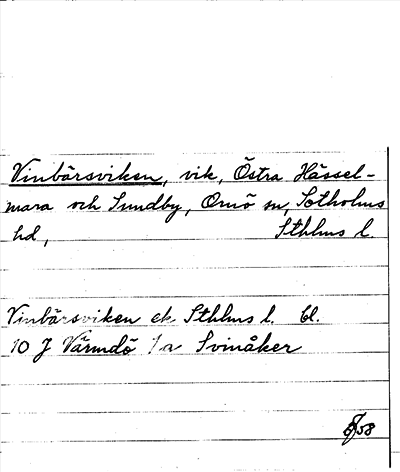 Vinbärsviken, vik, Östra Hässel-
mara och Sundby, Ornö sn, Sotholms
hd, Sthlms l.
Vinbärsviken ek Sthlms l. bl.
10 J Värmdö 1/a Svinåker
58